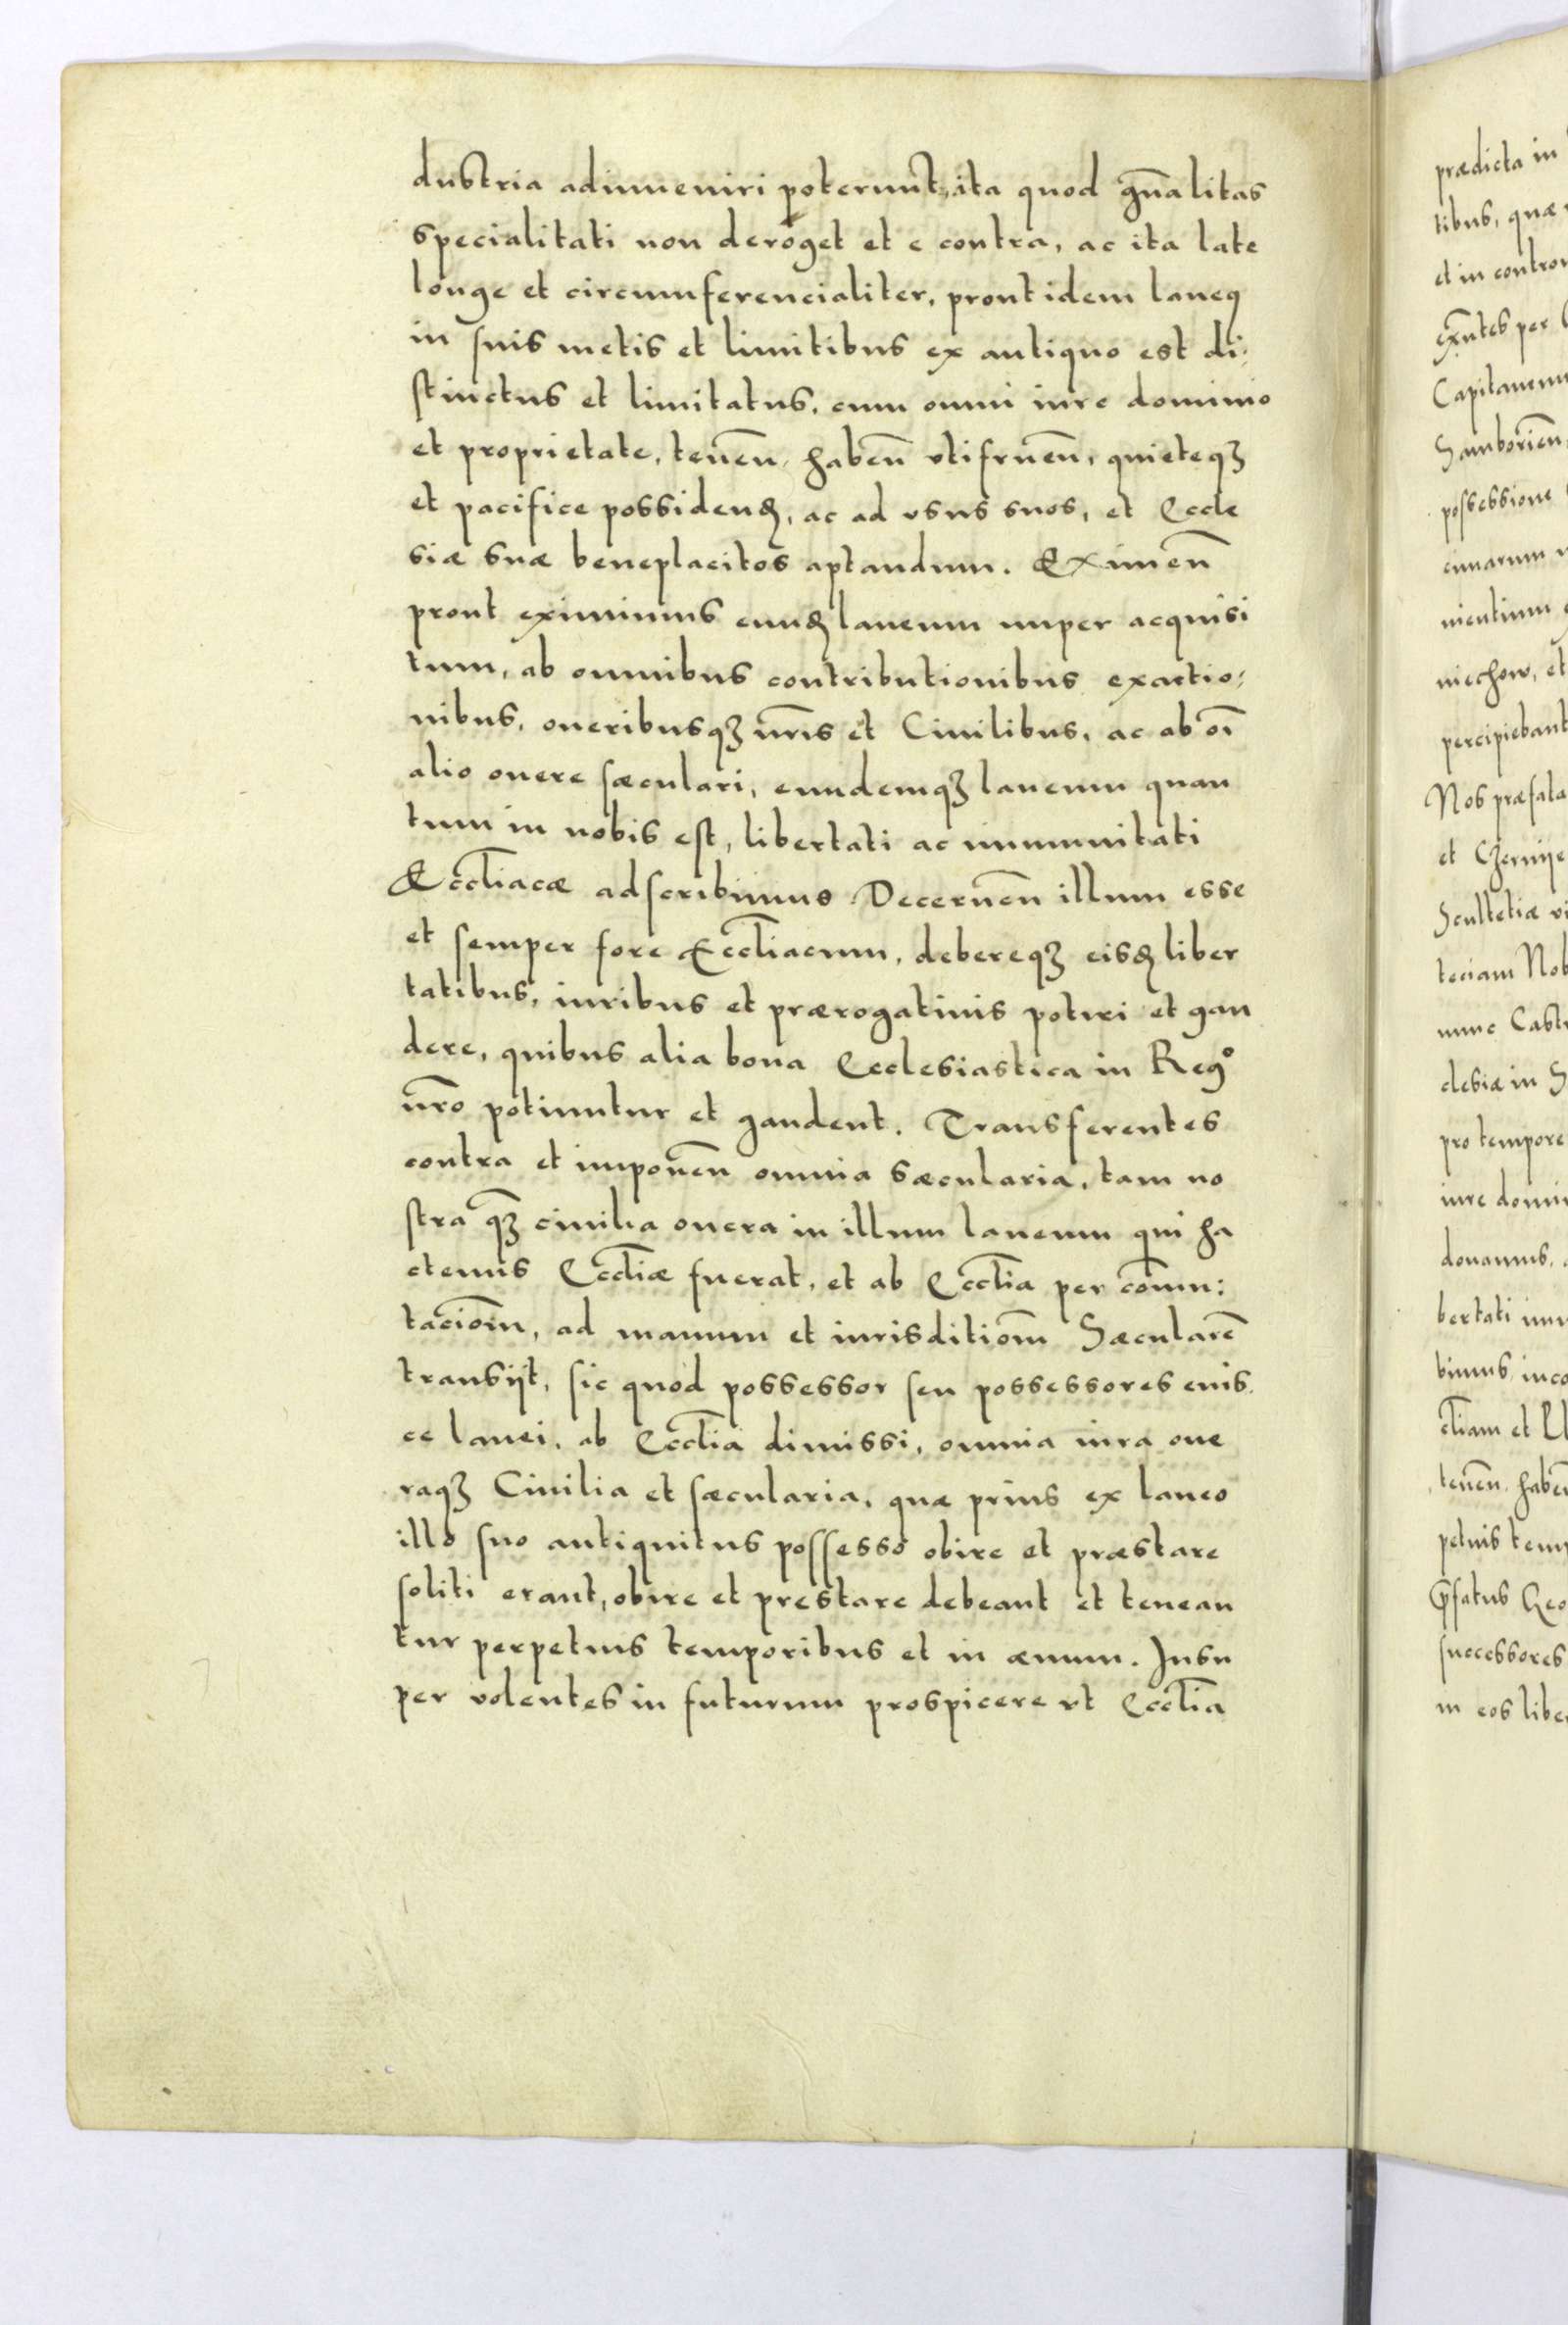 dustria adinueniri poterunt, ita quod gn̄alitas
specialitati non deroget et e contra, ac ita late
longe et circumferencialiter, prout idem laneꝰ
in suis metis et limitibus ex antiquo est di:
stinctus et limitatus, cum omni iure dominio
et proprietate, teneñ, habeñ vtifrueñ, quieteqꝫ
et pacifice possidenꝺ, ac ad vsus suos, et Eccle
siæ suæ beneplacitos aptandum. Eximeñ
prout eximimus eunꝺ laneum nuper acquisi
tum, ab omnibus contributionibus exactio:
nibus, oneribusqꝫ nr̄is et Ciuilibus, ac ab oī
alio onere sæculari, eundemqꝫ laneum quan
tum in nobis est, libertati ac immunitati
Eccl̄iacæ adscribimus Decerneñ illum esse
et semper fore Eccl̄iacum, debereqꝫ eisꝺ liber
tatibus, iuribus et prærogatiuis potiri et gau
dere, quibus alia bona Ecclesiastica in Regº
nr̄o potiuntur et gaudent. Transferentes
contra et imponeñ omnia sæcularia, tam no
stra qꝫ ciuilia onera in illum laneum qui ha
ctenus Eccl̄iæ fuerat, et ab Eccl̄ia per com̄u:
taciom̄, ad manum et iurisditiom̄ Sæcularē
transijt, sic quod possessor seu possessores euis
ce lanei, ab Eccl̄ia dimissi, omnia iura one
raqꝫ Ciuilia et sæcularia, quæ prius ex laneo
illo suo antiquitus possesso obire et præstare
soliti erant, obire et prestare debeant et tenean
tur perpetuis temporibus et in æuum. Insu
per volentes in futurum prospicere vt Eccl̄ia
prædicta in
tibus, quæ
et in contro
exn̄tes per
Capitaneum
Samborieñ
possessione
cimarum
nientium
niechow, et
percipiebant
Nos præfata
et Czernije
Scultetiæ vi
teciam Nob
nunc Castr
clesiæ in S
pro tempore
iure domin
donamus,
bertati imm
bimus, inco
cl̄iam et Pl
teneñ, habeñ
petuis temp
P̄fatus Geo
successores
in eos liber